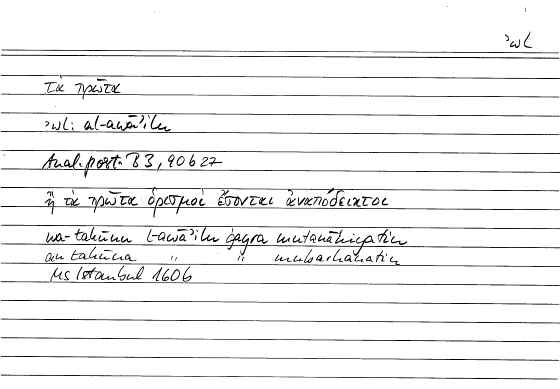 ʾwl
τὰ πρῶτα
ʾwl: al-awāʾilu
Anal. post. B 3, 90 b 27
ἢ τὰ πρῶτα ὁρισμοὶ ἔσονται ἀναπόδεικτοι
wa-takūnu l-awāʾilu ġayra mutanāhiyatin
an takūna " " mubarhanatin
Ms Istanbul 1606